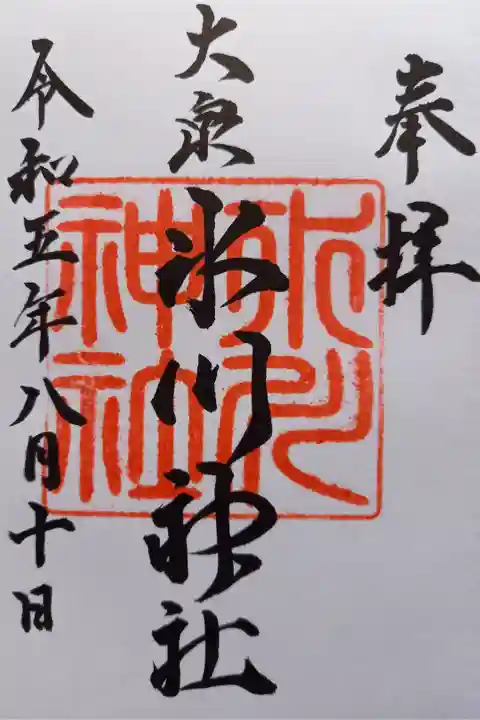 奉拝
大泉氷川神社
令和五年八月十日
神社